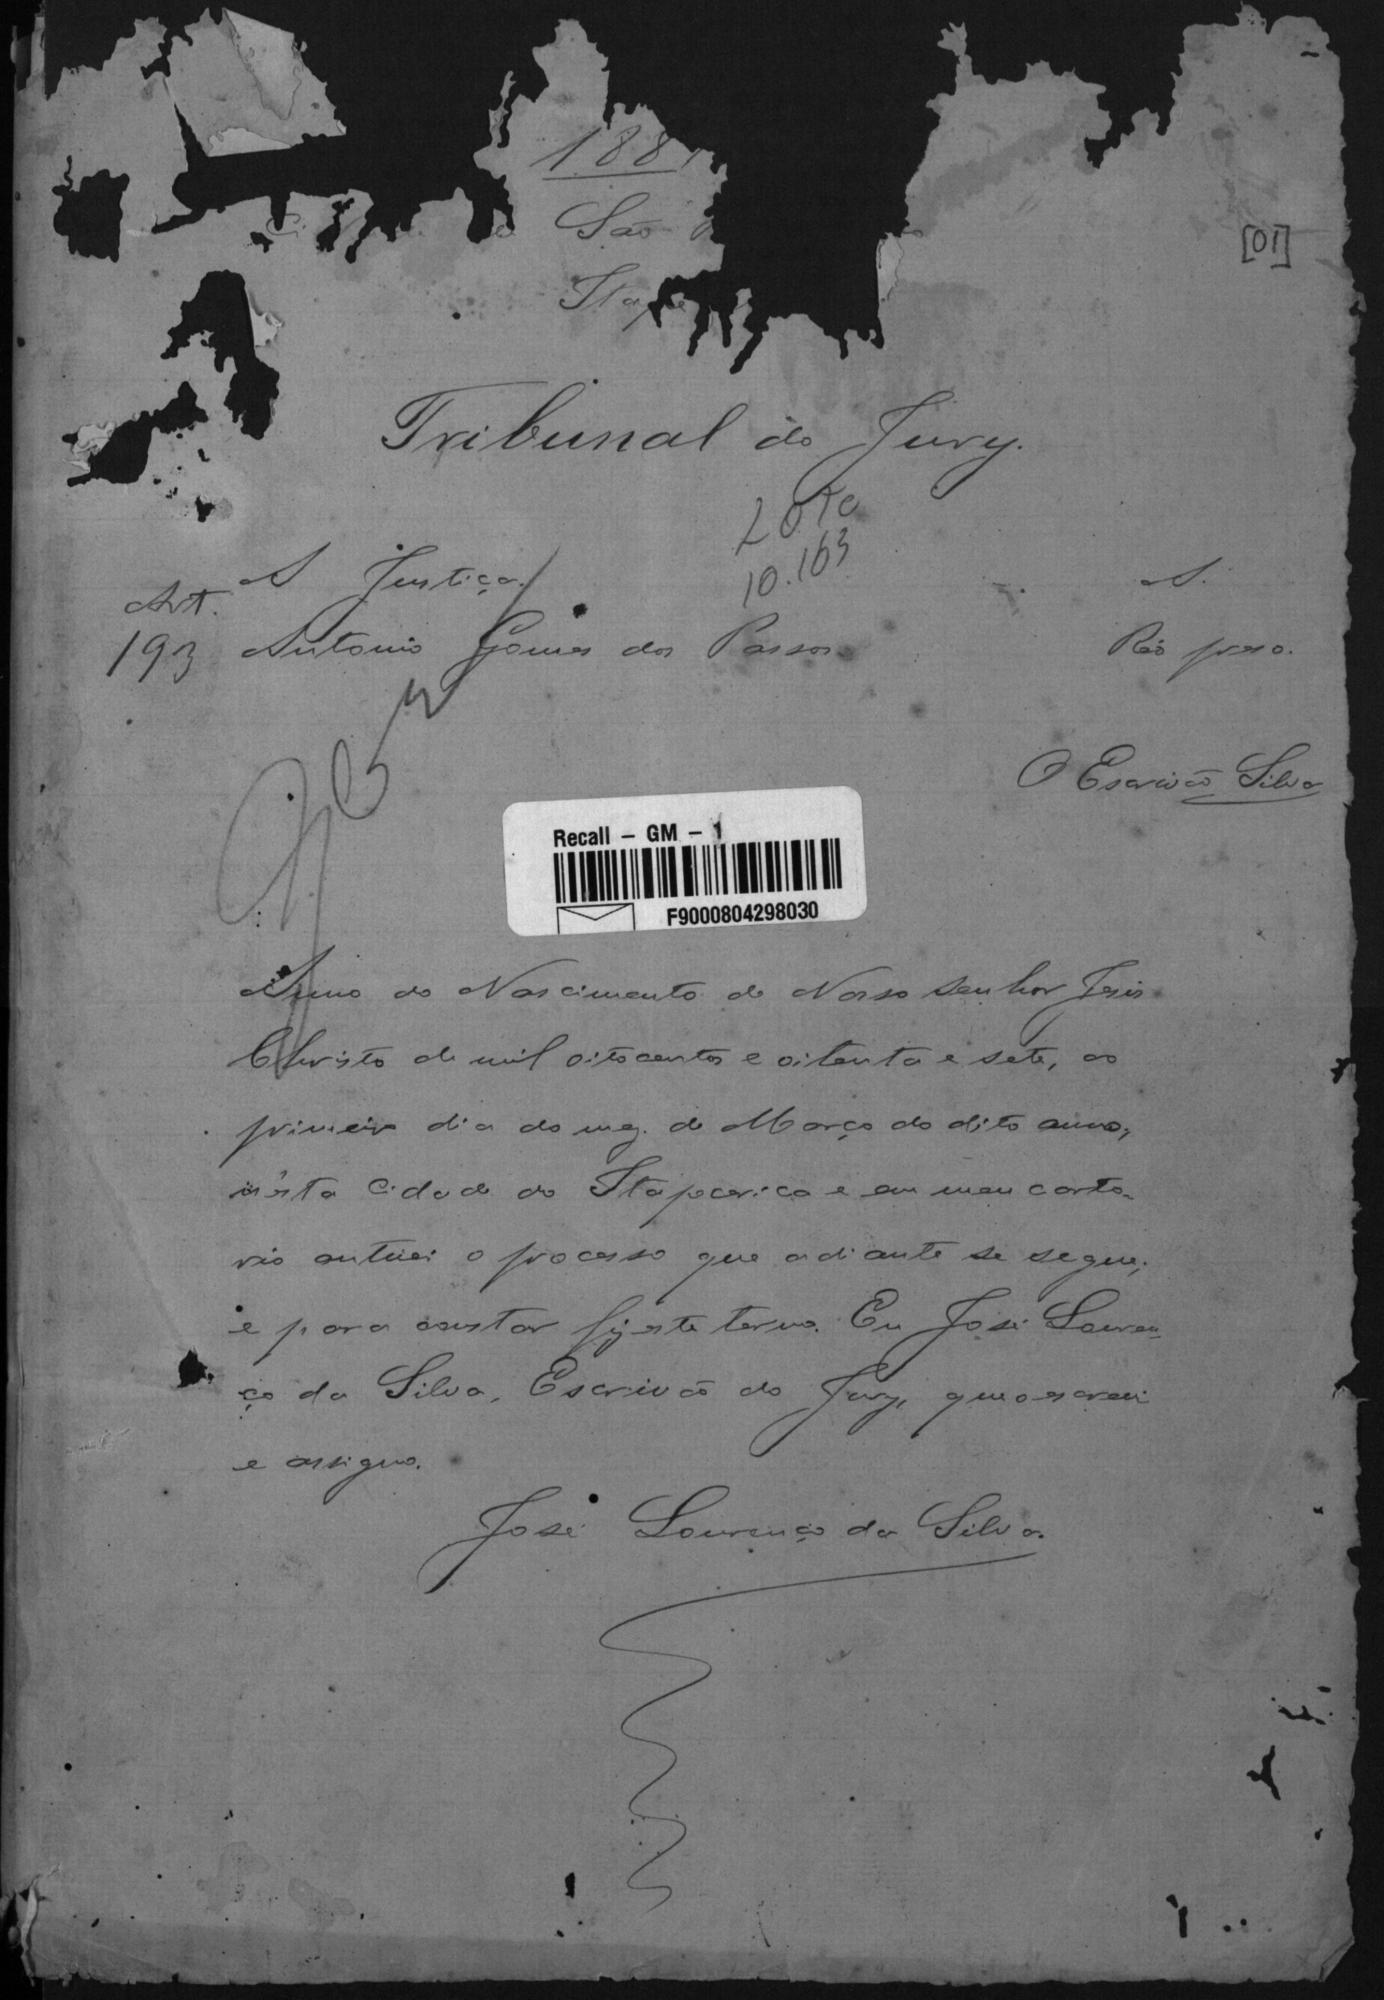 188
São
[01]
Itape
Tribunal do Jury.
Lote
10.163
A Justiça. A.
Art.
193 Antonio Gomes dos Passos Réo preso.
O Escrivão Silva
Recall – GM – 1
F9000804298030
Anno do Nascimento de Nosso Senhor Jesus
Christo de mil oitocentos e oitenta e sete, ao
primeiro dia do mez de Março do dito anno,
nésta Cidade do Itapecerica e em meu carto-
rio autuei o processo que adiante se segue;
e para constar fiz este termo. Eu José Louren-
ço da Silva, Escrivão do Jury, que o escrevi
e assigno.
José Lourenço da Silva.